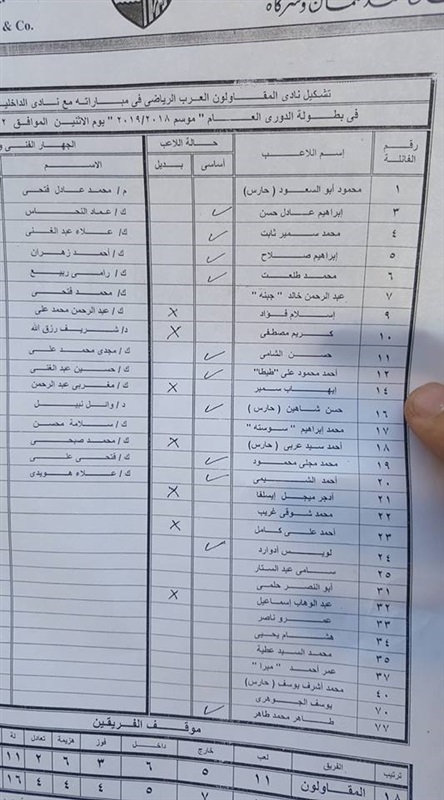 & Co.
تشكيل نادى المقاولون العرب الرياضى فى مباراته مع نادى الداخلية
فى بطولة الدورى العام " موسم ٢٠١٩/٢٠١٨ " يوم الاثنين الموافق
رقم الفانلة | إسم اللاعب | حالة اللاعب | الجهاز الفنى
أساسى | بديل | الاسم
١ | محمود أبو السعود (حارس) | م/ محمد عادل فتحى
٣ | إبراهيم عادل حسن | ✓ | ك/ عماد النحاس
٤ | محمد سمير ثابت | ✓ | ك/ علاء عبد الغنى
٥ | إبراهيم صلاح | ✓ | ك/ أحمد زهران
٦ | محمد طلعت | ✓ | ك/ رامى ربيع
٧ | عبد الرحمن خالد " جبنه " | ك/ محمد فتحى
٩ | إسلام فؤاد | X | ك/ عبد الرحمن محمد على
١٠ | كريم مصطفى | X | د/ شريف رزق الله
١١ | حسن الشامى | ✓ | ك/ مجدى محمد على
١٢ | أحمد محمود على "طيطا" | ✓ | ك/ حسين عبد الغنى
١٤ | إيهاب سمير | X | ك/ مغربى عبد الرحمن
١٦ | حسن شاهين (حارس) | ✓ | د/ وائل نبيل
١٧ | محمد إبراهيم " سوسته " | ك/ سلامة محسن
١٨ | أحمد سيد عربى (حارس) | X | ك/ محمد صبحى
١٩ | محمد مجلى محمود | ✓ | ك/ فتحى على
٢٠ | أحمد الشيمى | ✓ | ك/ علاء هويدى
٢١ | أدجر ميجل إيسلفا | X
٢٢ | محمد شوقى غريب
٢٣ | أحمد على كامل | X
٢٤ | لويس أدوارد | ✓
٢٥ | سامى عبد الستار
٣١ | أبو النصر حلمى
٣٢ | عبد الوهاب إسماعيل | X
٣٣ | عمرو ناصر
٣٤ | هشام يحيى
٣٥ | محمد السيد عطية
٣٧ | عمر أحمد " ميرا "
٤٠ | محمد أشرف يوسف (حارس)
٧٠ | يوسف الجوهرى
٧٧ | طاهر محمد طاهر | ✓
موقف الفريقين
ترتيب | الفريق | لعب | خارج | داخل | فوز | هزيمة | تعادل
١٨ | المقاولون | ١١ | ٥ | ٦ | ٣ | ٦ | ٢ | ١١
٧ | ٥ | ٤ | ٤ | ٤ | ١٦